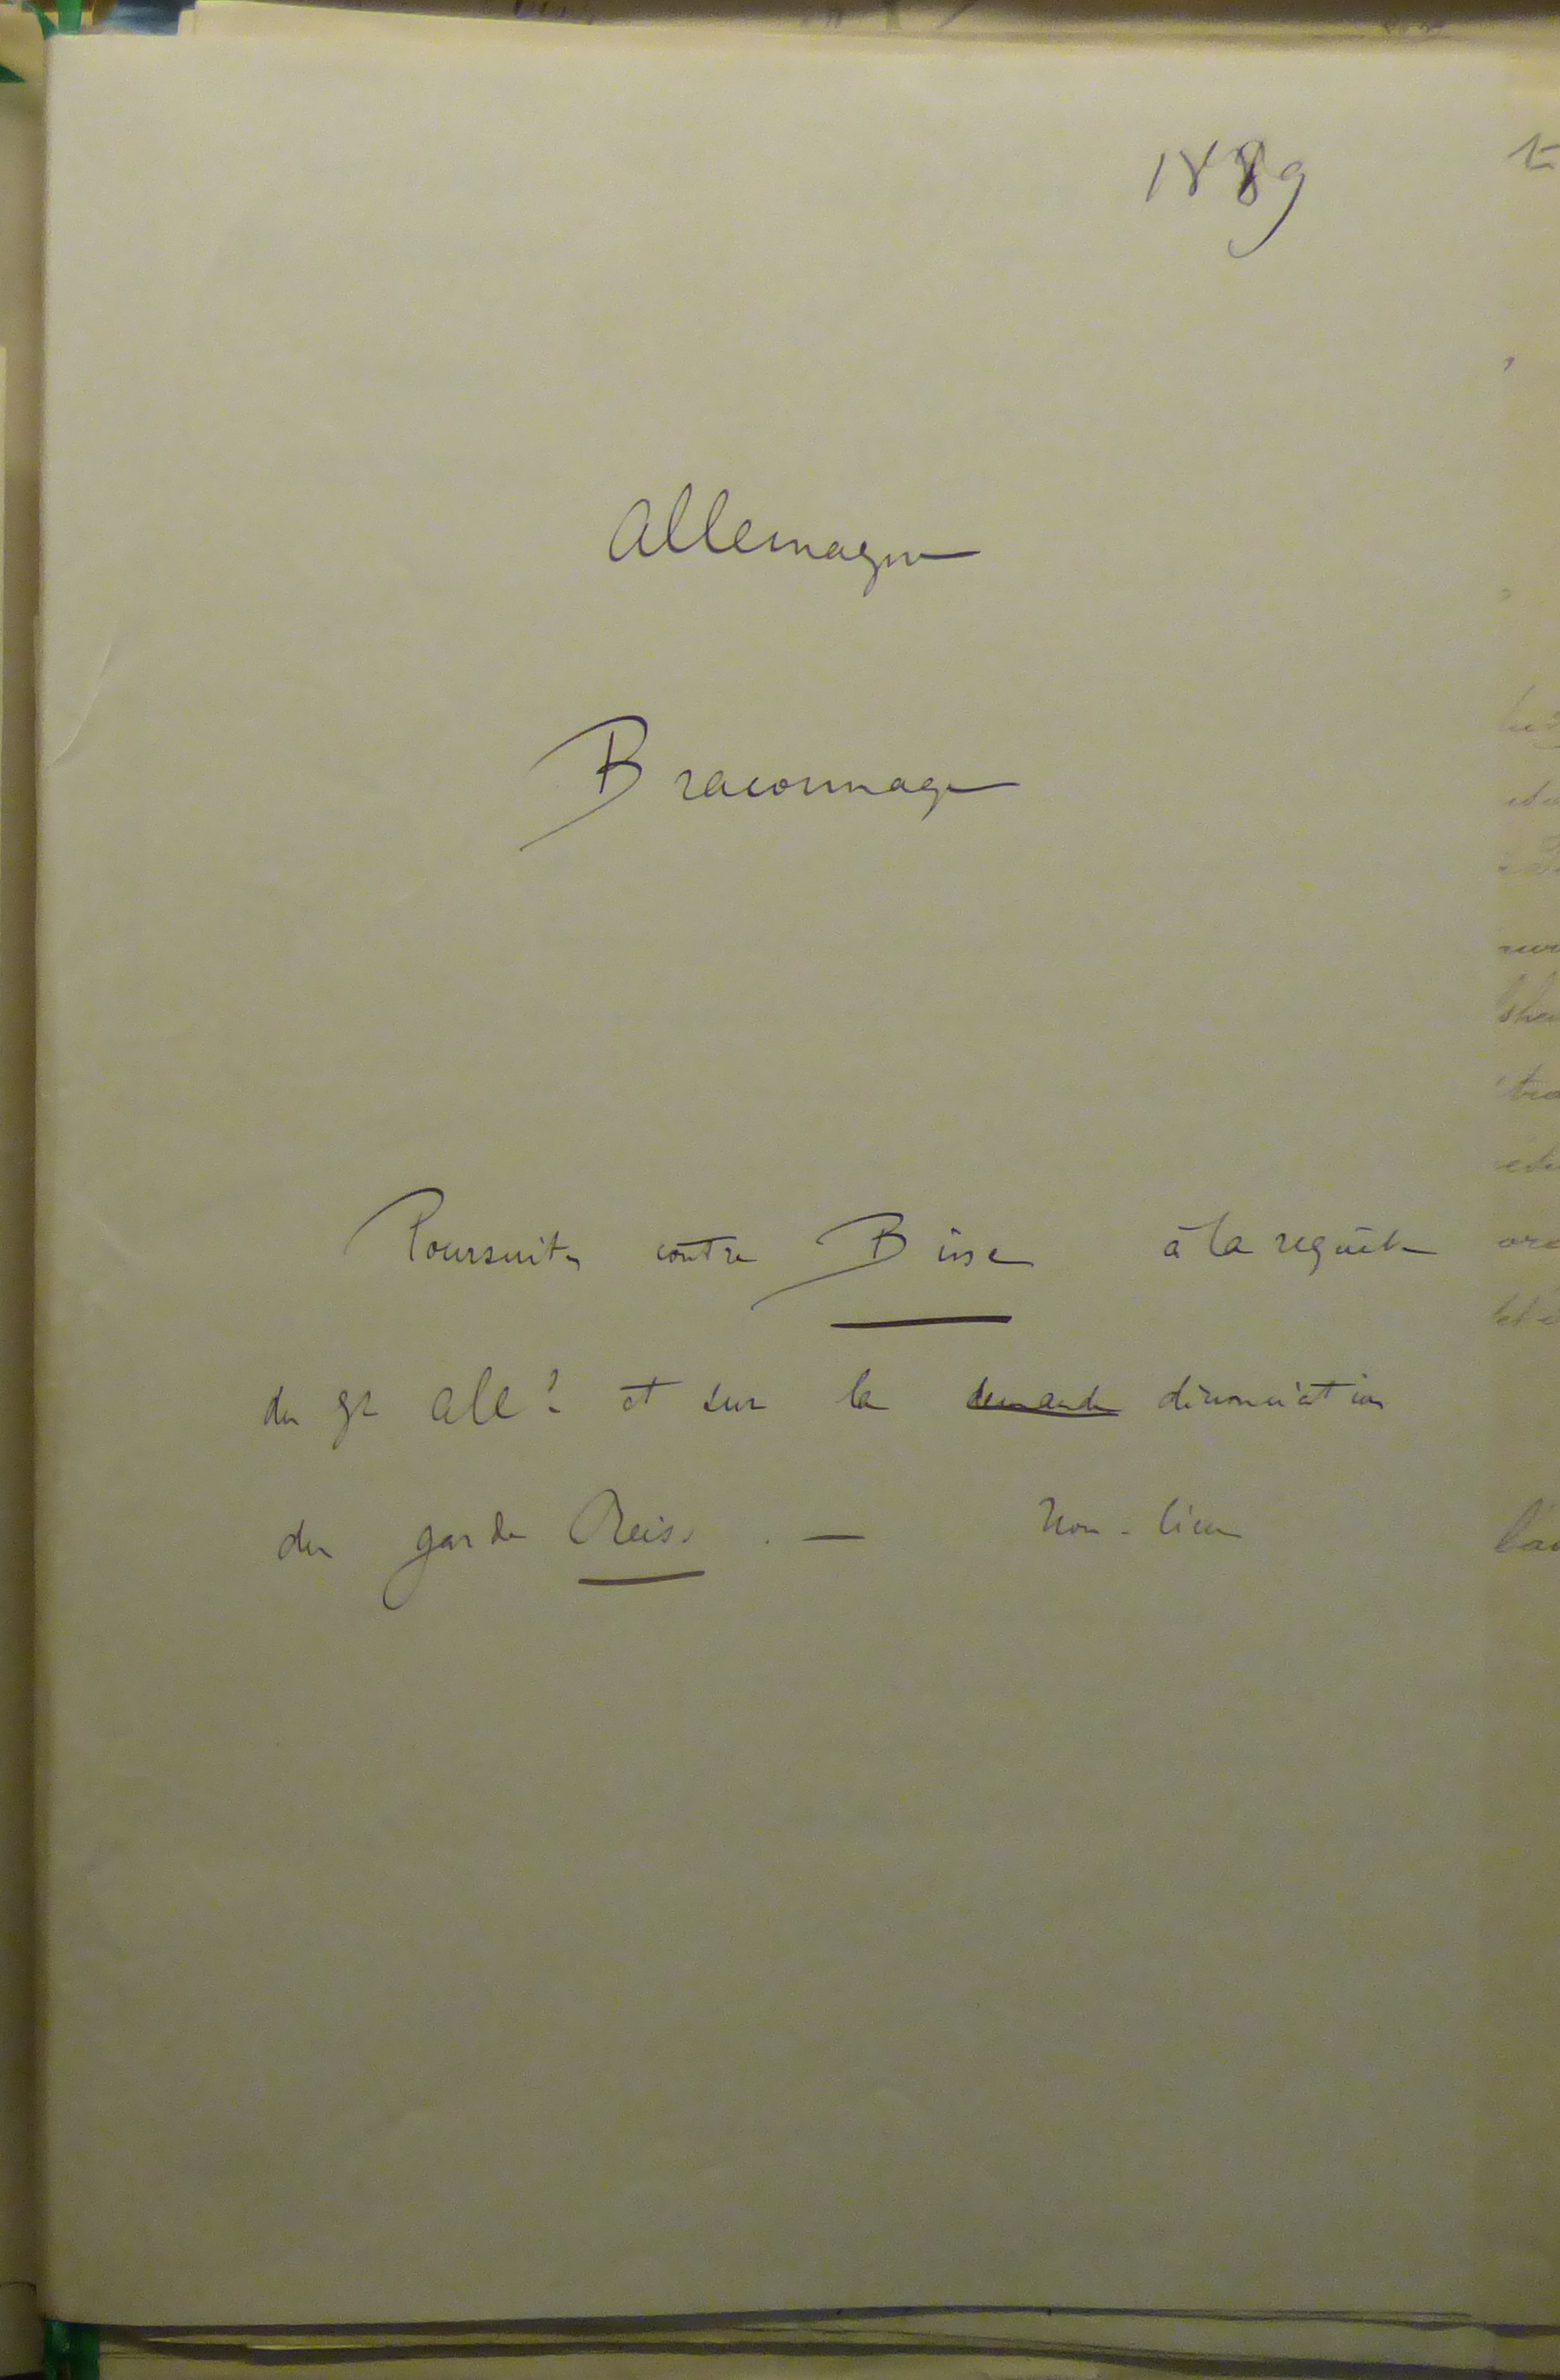 1889
Allemagne
Braconnage
Poursuites contre Bisse à la requête
du gt all? et sur la demande dénonciation
du garde Reiss. — Non-lieu